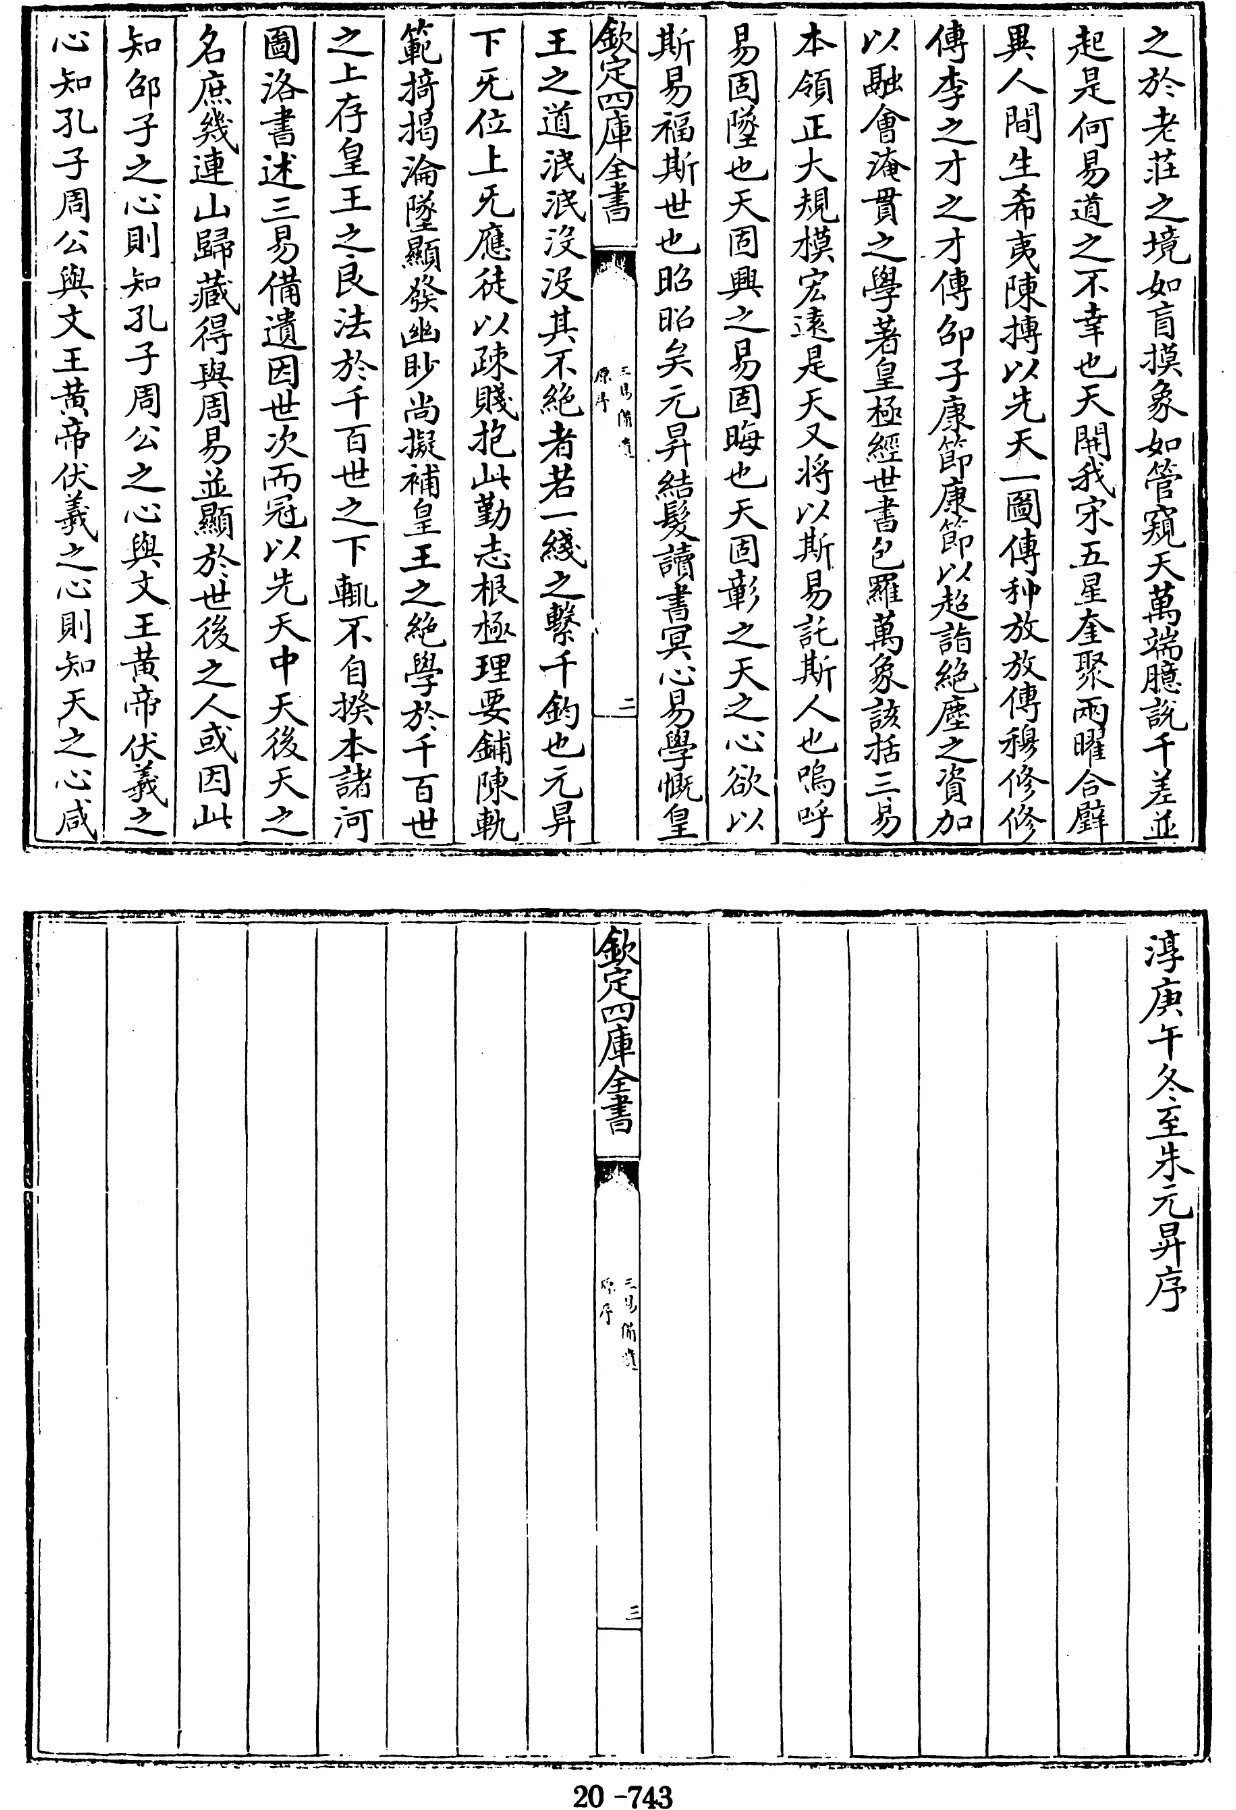 之於老莊之境如盲摸象如管窺天萬端臆說千差並
起是何易道之不幸也天開我宋五星奎聚兩曜合璧
異人間生希夷陳摶以先天一圖傳种放放傳穆修修
傳李之才之才傳邵子康節康節以超詣絶塵之資加
以融會淹貫之學著皇極經世書包羅萬象該括三易
本領正大規模宏遠是天又将以斯易託斯人也嗚呼
易固墜也天固興之易固晦也天固彰之天之心欲以
斯易福斯世也昭昭矣元昇結髮讀書冥心易學慨皇
欽定四庫全書
三易備遺
原序
二
王之道泯泯没没其不絶者若一綫之繫千鈞也元昇
下旡位上旡應徒以疎賤抱此勤志根極理要鋪陳軌
範掎掲淪墜顯發幽眇尚擬補皇王之絶學於千百世
之上存皇王之良法於千百世之下輒不自揆本諸河
圖洛書述三易備遺因世次而冠以先天中天後天之
名庶幾連山歸藏得與周易並顯於世後之人或因此
知邵子之心則知孔子周公之心與文王黄帝伏羲之
心知孔子周公與文王黄帝伏羲之心則知天之心咸
淳庚午冬至朱元昇序
欽定四庫全書
三易備遺
原序
三
20-743